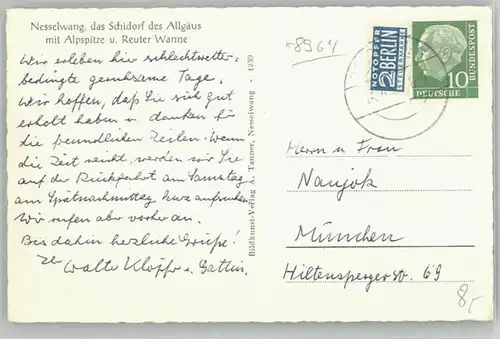 Nesselwang, das Schidorf des Allgäus
mit Alpspitze u. Reuter Wanne
Wir erleben hier schlechtwetter-
bedingte geruhsame Tage.
Wir hoffen, daß Sie sich gut
erholt haben u. danken für
die freundlichen Zeilen. Wenn
die Zeit reicht, werden wir Sie
auf der Rückfahrt am Samstag
am Spätnachmittag kurz aufsuchen.
Wir rufen aber vorher an.
Bis dahin herzliche Grüße!
Walter Klopfer u. Gattin.
Bildkunst-Verlag A. Tanner, Nesselwang · 1239
8964
NOTOPFER
2 BERLIN
STEUERMARKE
DEUTSCHE
BUNDESPOST
10
Herrn u. Frau
Naujok
München
Hiltenspergerstr. 69
8,-